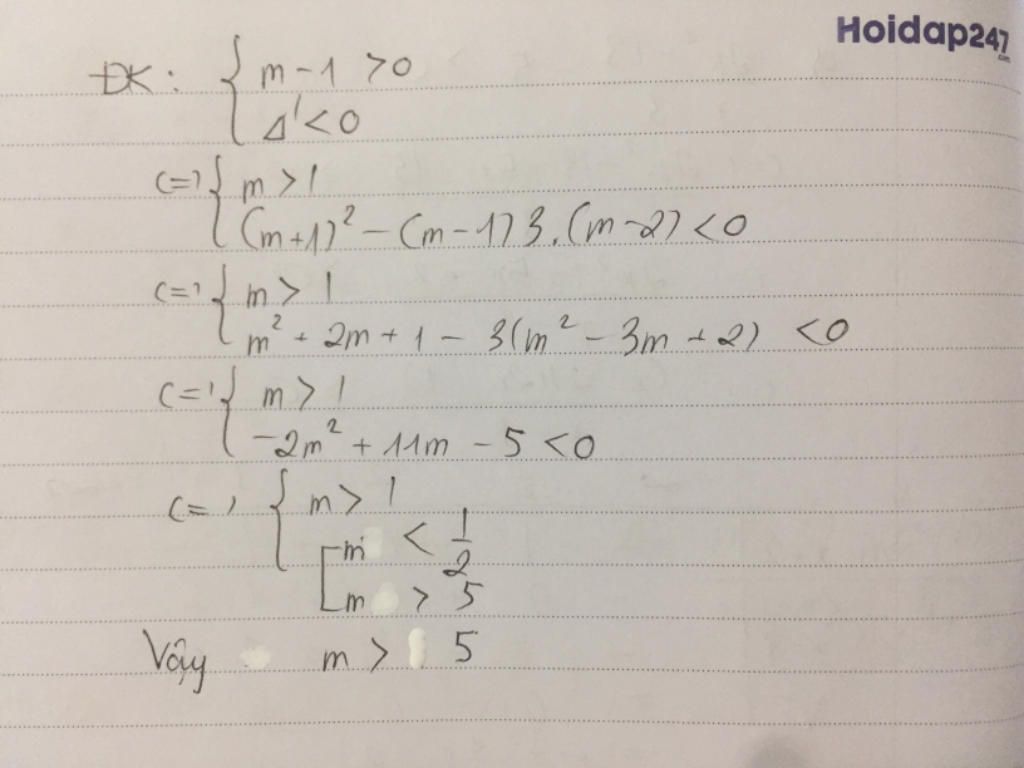 Hoidap247
.com
ĐK: { m - 1 > 0
Δ' < 0
<=> { m > 1
(m+1)² - (m-1)3.(m-2) < 0
<=> { m > 1
m² + 2m + 1 - 3(m² - 3m + 2) < 0
<=> { m > 1
-2m² + 11m - 5 < 0
<=> { m > 1
[ m < 1/2
m > 5
Vậy m > 5